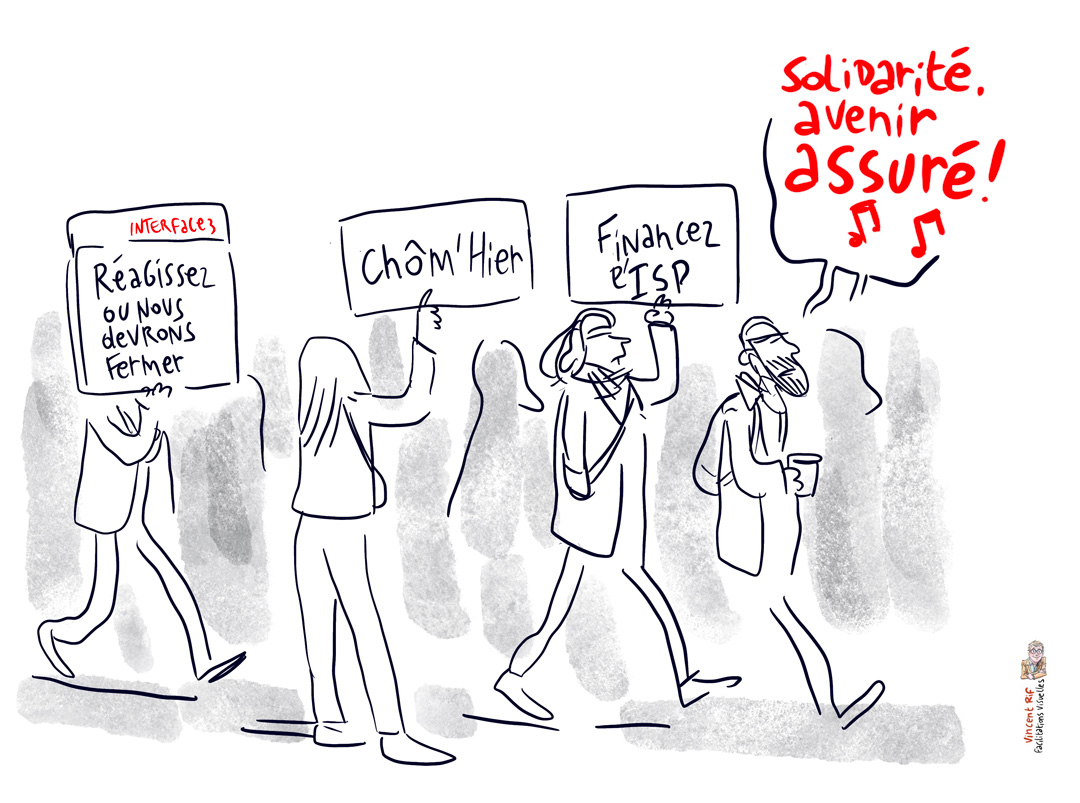 INTERFACE3
Réagissez
ou nous
devrons
fermer
Chôm'Hier
Financez
l'ISP
Solidarité,
avenir
assuré!
Vincent Rif
Facilitations Visuelles